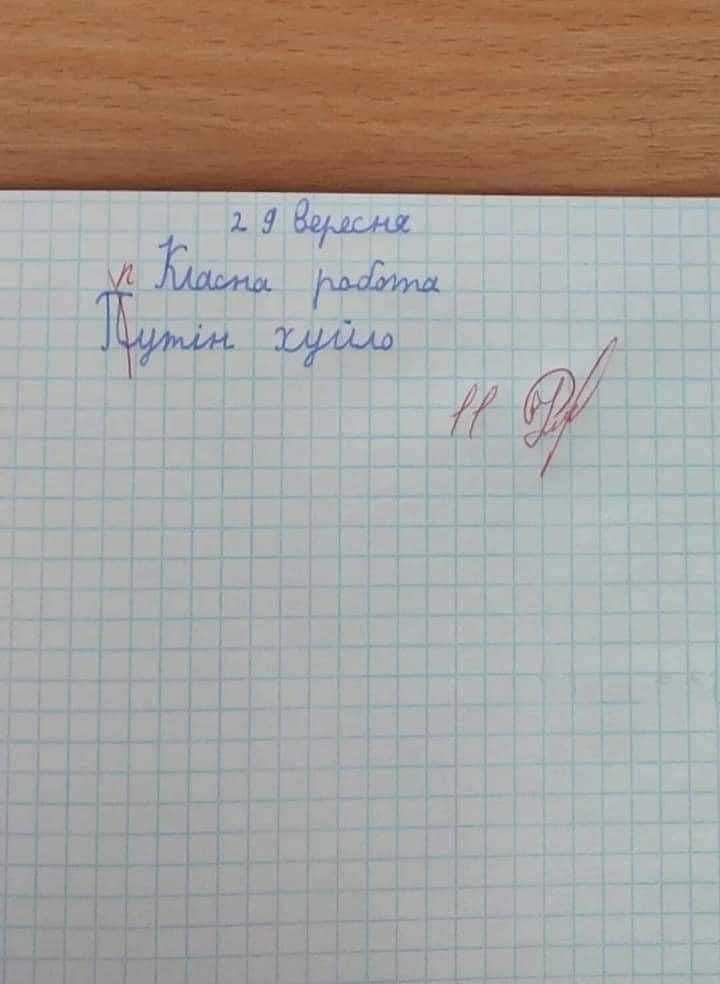 29 вересня
Класна робота
п
Путін хуйло
11